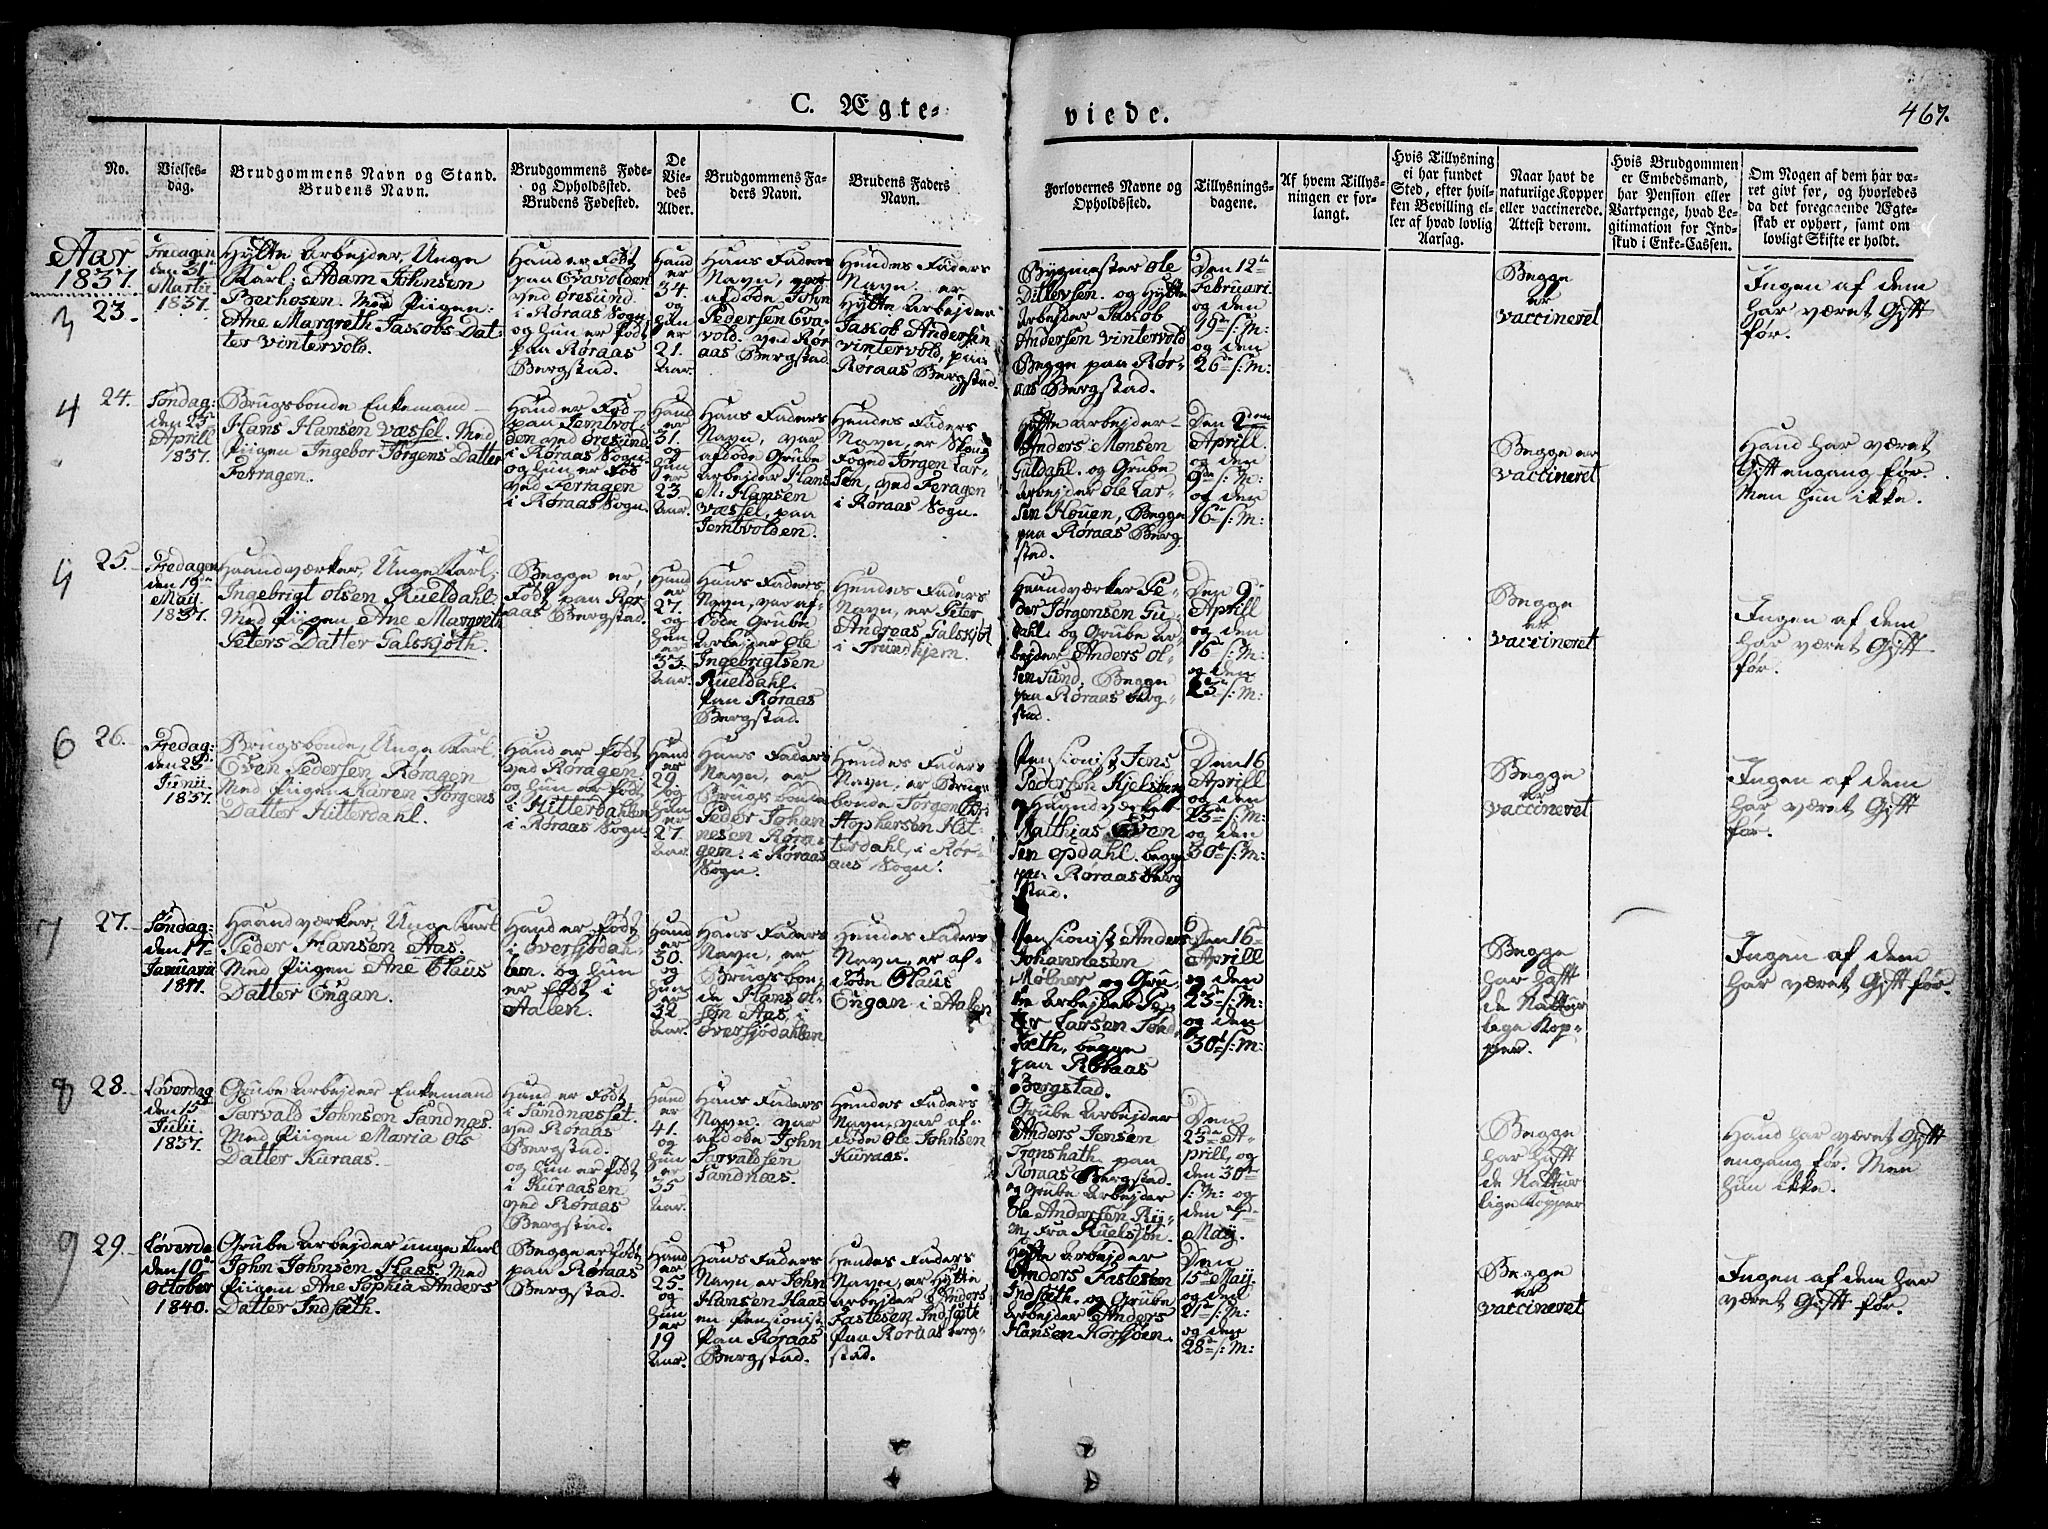 C. Ægte-
viede.
467.
No.
Vielses-
dag.
Brudgommens Navn og Stand.
Brudens Navn.
Brudgommens Føde-
og Opholdssted.
Brudens Fødested.
De
Vie-
des
Alder.
Brudgommens Fa-
ders Navn.
Brudens Faders
Navn.
Forlovernes Navne og
Opholdssted.
Tillysnings-
dagene.
Af hvem Tillys-
ningen er for-
langt.
Hvis Tillysning
ei har fundet
Sted, efter hvil-
ken Bevilling el-
ler af hvad lovlig
Aarsag.
Naar havt de
naturlige Kopper
eller vaccinerede.
Attest derom.
Hvis Brudgommen
er Embedsmand,
har Pension eller
Vartpenge, hvad Le-
gitimation for Ind-
skud i Enke-Cassen.
Om Nogen af dem har væ-
ret givt for, og hvorledes
da det foregaaende Ægte-
skab er ophørt, samt om
lovligt Skifte er holdt.
Aar
1837.
3
23.
Fredagen
den 31
Martii
1837.
Hytte Arbejder, Unge
Karl, Adam Johnsen
Berhosen. Med Piigen:
Ane Margreth Jacobs Dat-
ter Vintervold.
Hand er Født
paa Evavolden
ved Øresund
i Røraas Sogn
og hun er født
paa Røraas
Bergstad.
Hand
er
34.
og
hun
er
21.
Aar.
Hans Faders
Navn, var
afdøde John
Pedersen Eva-
vold. ved Rør
aas Bergstad
Hendes Faders
Navn. er
Hytte Arbejder
Jakob Andersen
Vintervold, paa
Røraas Bergstad.
Bygmester Ole
Ditlevsen. og Hytte
Arbejder Jakob
Andersen Vintervold
Begge paa Rør-
aas Bergstad.
Den 12te
Februari
og den
19de s: M:
og den
26de s: M:
Begge
er
vaccineret
Ingen af dem
har været Gift
før.
4
24.
Søndag:
den 23de
Aprill
1837.
Brugsbonde Enkemand
Hans Hansen Væssel. Med
Piigen Ingebor Jørgens Datter
Feragen.
Hand er Fød
paa Jemtvol-
den ved Øresund
i Røraas Sogn.
og hun er Fød
ved Ferragen
i Røraas Sogn.
Hand
er
31.
og
hun
er
23
Aar.
Hans Faders
Navn, var
afdøde Grube
Arbejder Hans
M: Hansen
Væssel, paa
Jemtvolden.
Hendes Faders
Navn, er Skoug
Foged Jørgen Lar-
sen, ved Feragen
i Røraas Sogn.
Hytte Arbejder
Anders Monsen
Guldahl. og Grube
Arbejder Ole Lar-
sen Houen, Begge
paa Røraas Berg
stad.
Den 2den
Aprill.
og den
9de s: M:
og den
16de s: M:
Begge er
vaccineret
Hand har været
Gift engang før.
Men hun ikke.
25.
Fredagen
den 19de
May.
1837.
Haandværker, Unge Karl,
Ingebrigt Olsen Rueldahl
Med Piigen Ane Margreth
Peters Datter Galskjøth.
Begge er,
Født paa Rør-
aas Bergstad.
Hand
er
27.
og
hun
er
33.
Aar.
Hans Faders
Navn, var af-
døde Grube
Arbejder Ole
Ingebrigtsen
Rueldahl.
Paa Røraas
Bergstad.
Hendes Faders
Navn, er Peter
Andreas Galskjøt
i Trundhjem.
Haandværker Pe-
der Jørgensen Gul-
dahl. og Grube Ar-
bejder Anders Ol-
sen Sund, Begge
paa Røraas Berg-
stad.
Den 9de
Aprill
og den
16de s: M:
og den
23de s: M:
Begge
er
vaccineret
Ingen af dem
har været Gift
før.
6
26.
Fredag:
den 23de
Junii
1837.
Brugsbonde, Unge Karl
Even Pedersen Røragen
Med Piigen Karen Jørgens
Datter Hitterdahl.
Hand er født
ved Røragen.
og hun er født
i Hitterdahlen
i Røraas Sogn.
Hand
er
29.
og
hun
er
27.
Aar.
Hans Faders
Navn, er
Brugsbonde
Peder Johan
nesen Røra-
gen. i Røraas
Sogn.
Hendes Faders
Navn, er Brugs
bonde Jørgen Chri-
stophersen Hit-
terdahl, i Rør-
aas Sogn.
Pensionist Jens
Pedersen Kjelsberg
og Haandværker
Matthias Even
sen Opdahl. begge
paa Røraas Berg
stad.
Den 16
Aprill
og den
23de s: M:
og den
30te s: M:
Begge
er
vaccineret
Ingen af dem
har været Gift
før.
7
27.
Søndag:
den 17de
Januarii
1841.
Haandværker, Unge Karl
Peder Hansen Aas.
Med Piigen Ane Olaus
Datter Engan.
Hand er født
i Øversjødah-
len. og hun
er født i
Aalen.
Hand
er
30.
og
hun
er
32
Aar.
Hans Faders
Navn, er
Brugsbon-
de Hans Ol-
sen Aas, i
Øversjødahlen
Hendes Faders
Navn, er af-
døde Olaus
Engan, i Aalen
Pensionist Anders
Johannesen
Mølner og Gru
be Arbejder Pe-
der Larsen Sønd-
sæth, begge
paa Røraas
Bergstad.
Den 16de
Aprill
og den
23de s: M:
og den
30te s: M:
Begge
har haft
de Nattur
lege Kop-
per.
Ingen af dem
har været Gift før.
8
28.
Løverdag
den 15de
Julii.
1837.
Grube Arbejder Enkemand
Tarvald Johnsen Sandnæs.
Med Piigen Maria Ols
Datter Kuraas.
Hand er Født
i Sandnæsset.
ved Røraas
Bergstad.
og hun er født
i Kuraasen
ved Røraas
Bergstad.
Hand
er
41.
og
hun
er
35
Aar.
Hans Faders
Navn. var
afdøde John
Tarvaldsen
Sandnæs.
Hendes Faders
Navn, var af-
døde Ole Johnsen
Kuraas.
Grube Arbejder
Anders Jensen
Tronshath. paa
Røraas Bergstad.
og Grube Arbejder
Ole Andersen Ry-
en, Fra Ruelsjøn.
Den
23de A-
prill, og
den 30te
s: M: og
den 7de
May.
Begge
har haft
de Nattur
lige Kopper
Hand har været Gift
engang før. Men
hun ikke.
9
29.
Løverda
den 10de
October
1840.
Grube Arbejder unge Karl
John Johnsen Haas. Med
Piigen Ane Sophia Anders
Datter Indsæth.
Begge er født
paa Røraas
Bergstad.
Hand
er
25.
og
hun
er
19
Aar.
Hans Faders
Navn er John
Hansen Haas
en Pensionist
Paa Røraas
Bergstad.
Hendes Faders
Navn, er Hytte
Arbejder Anders
Fastesen, Indsæth
paa Røraas Berg-
stad.
Hytte Arbejder
Anders Fastesen
Indsæth. og Grube
Arbejder Anders
Hansen Korssjøen.
Den
15de May.
og den
21de s: M:
og den
28de s: M:
Begge
er
vaccineret
Ingen af dem har
været Gift før.